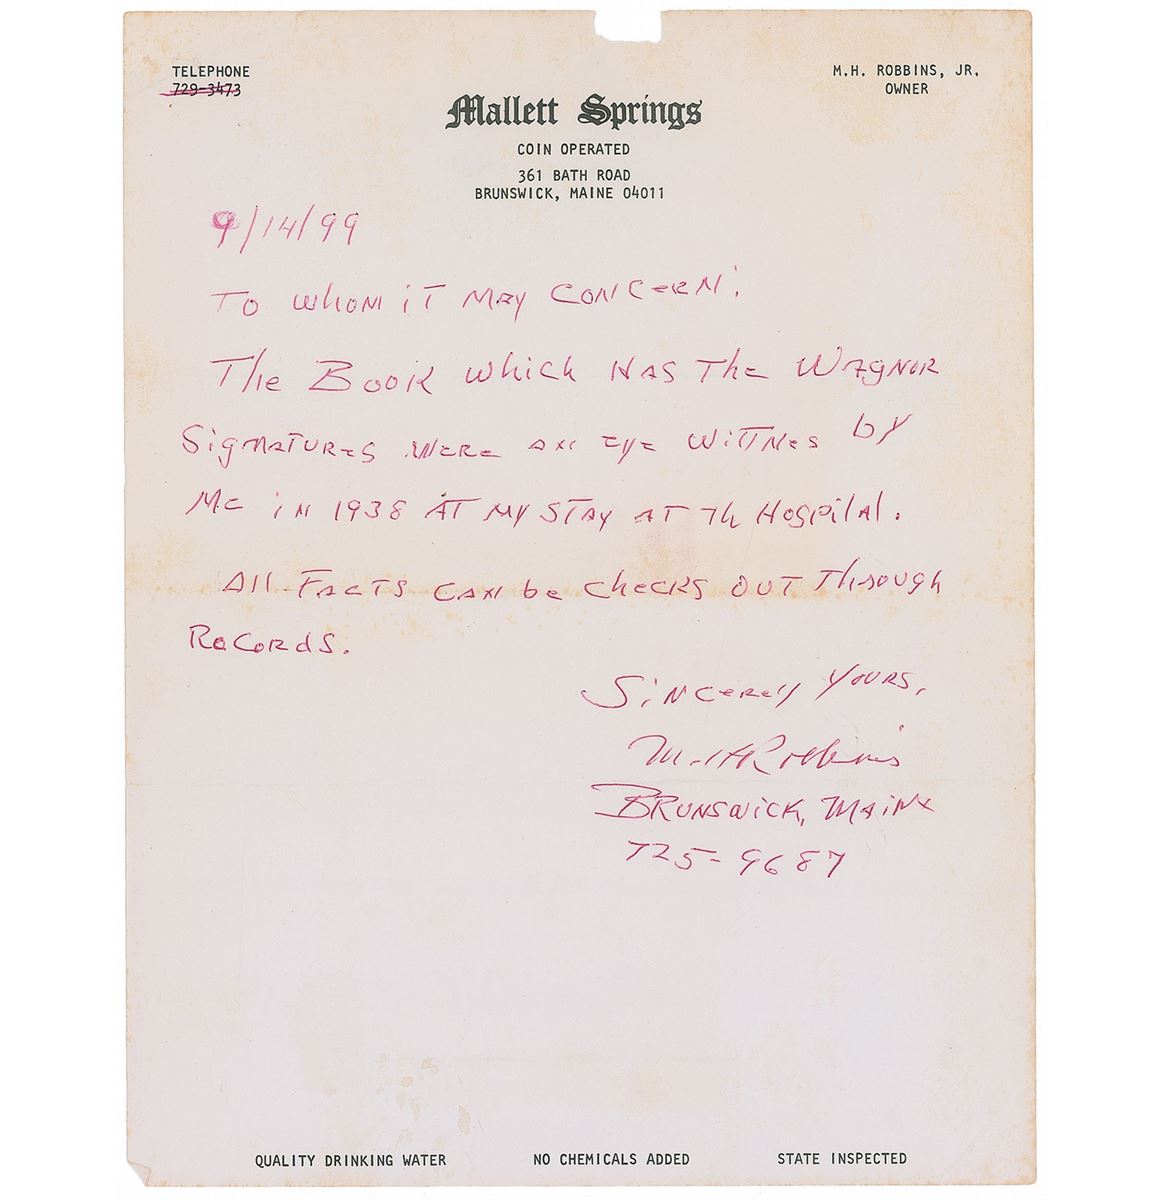 TELEPHONE
729-3473
M.H. ROBBINS, JR.
OWNER
Mallett Springs
COIN OPERATED
361 BATH ROAD
BRUNSWICK, MAINE 04011
9/14/99
To whom it May Concern:
The Book which HAS The Wagnor
Signatures were an eye wittnes by
Me in 1938 AT My STAY AT Th Hospital.
All FACTS CAN be checks OUT Through
Records.
Sincerely Yours,
M.H Robbins
Brunswick, Maine
725-9687
QUALITY DRINKING WATER
NO CHEMICALS ADDED
STATE INSPECTED